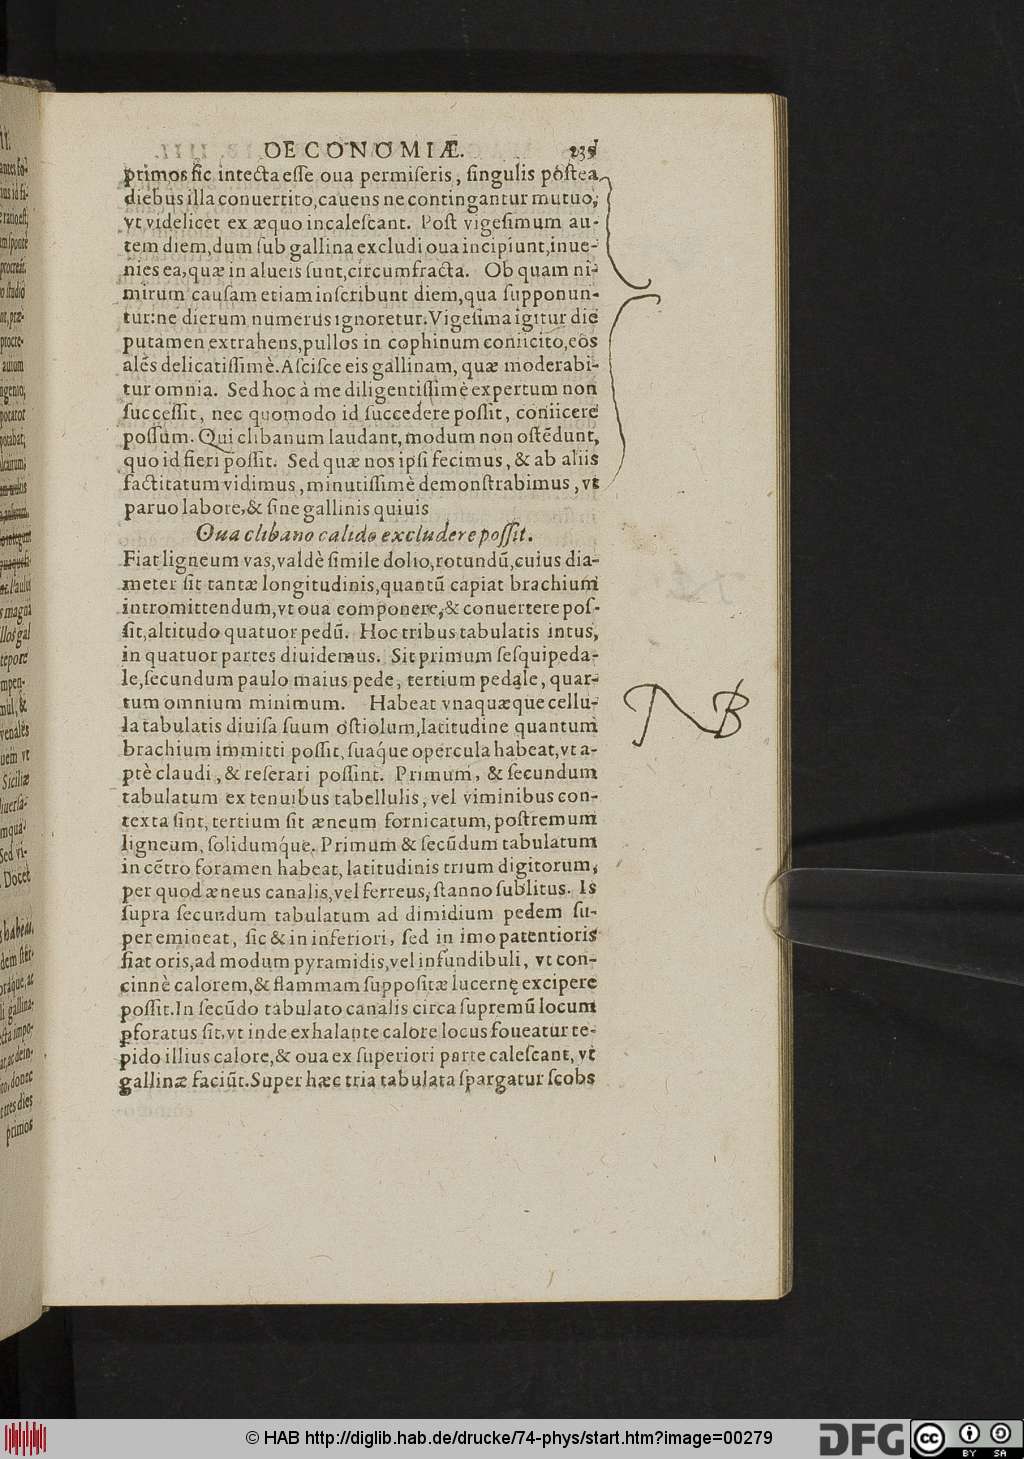 OECONOMIÆ. 235
primos ſic intecta eſſe oua permiſeris, ſingulis poſtea
diebus illa conuertito, cauens ne contingantur mutuo,
vt videlicet ex æquo incaleſcant. Poſt vigeſimum au-
tem diem, dum ſub gallina excludi oua incipiunt, inue-
nies ea, quæ in alueis ſunt, circumfracta. Ob quam ni-
mirum cauſam etiam inſcribunt diem, qua ſupponun-
tur: ne dierum numerus ignoretur. Vigeſima igitur die
putamen extrahens, pullos in cophinum coniicito, eos
alẽs delicatiſſimè. Aſciſce eis gallinam, quæ moderabi-
tur omnia. Sed hoc à me diligentiſſimè expertum non
ſucceſſit, nec quomodo id ſuccedere poſſit, coniicere
poſſum. Qui clibanum laudant, modum non oſtẽdunt,
quo id fieri poſſit. Sed quæ nos ipſi fecimus, & ab aliis
factitatum vidimus, minutiſſimè demonſtrabimus, vt
paruo labore, & ſine gallinis quiuis
Oua clibano calido excludere poſſit.
Fiat ligneum vas, valdè ſimile dolio, rotundũ, cuius dia-
meter ſit tantæ longitudinis, quantũ capiat brachium
intromittendum, vt oua componere, & conuertere poſ-
ſit, altitudo quatuor pedũ. Hoc tribus tabulatis intus,
in quatuor partes diuidemus. Sit primum ſeſquipeda-
le, ſecundum paulo maius pede, tertium pedale, quar-
tum omnium minimum. Habeat vnaquæque cellu-
la tabulatis diuiſa ſuum oſtiolum, latitudine quantum
brachium immitti poſſit, ſuaq́ue opercula habeat, vt a-
ptè claudi, & reſerari poſſint. Primum, & ſecundum
tabulatum ex tenuibus tabellulis, vel viminibus con-
texta ſint, tertium ſit æneum fornicatum, poſtremum
ligneum, ſolidumq́ue. Primum & ſecũdum tabulatum
in cẽtro foramen habeat, latitudinis trium digitorum,
per quod æneus canalis, vel ferreus, ſtanno ſublitus. Is
ſupra ſecundum tabulatum ad dimidium pedem ſu-
peremineat, ſic & in inferiori, ſed in imo patentioris
fiat oris, ad modum pyramidis, vel infundibuli, vt con-
cinnè calorem, & flammam ſuppoſitæ lucernę excipere
poſſit. In ſecũdo tabulato canalis circa ſupremũ locum
ꝑforatus ſit, vt inde exhalante calore locus foueatur te-
pido illius calore, & oua ex ſuperiori parte caleſcant, vt
gallinæ faciũt. Super hæc tria tabulata ſpargatur ſcobs
NB
© HAB http://diglib.hab.de/drucke/74-phys/start.htm?image=00279
DFG
cc BY SA